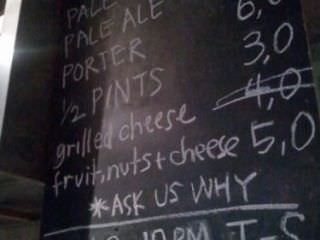 PALE
PALE ALE 6,0
PORTER 3,0
½ PINTS 4,0
grilled cheese 5,0
fruit, nuts + cheese
*ASK US WHY
10PM T-S